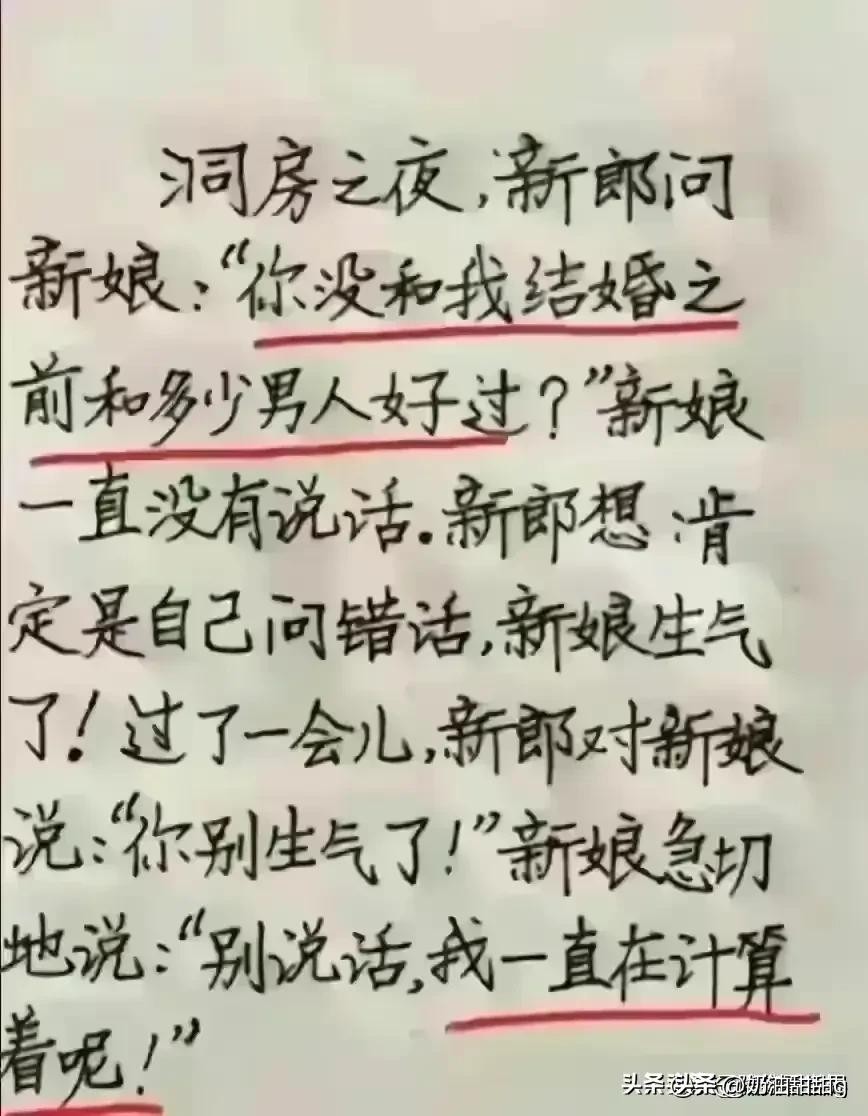 洞房之夜,新郎问
新娘:“你没和我结婚之
前和多少男人好过?”新娘
一直没有说话.新郎想:肯
定是自己问错话,新娘生气
了!过了一会儿,新郎对新娘
说:“你别生气了!”新娘急切
地说:“别说话,我一直在计算
着呢!”
头条 @奶油甜甜